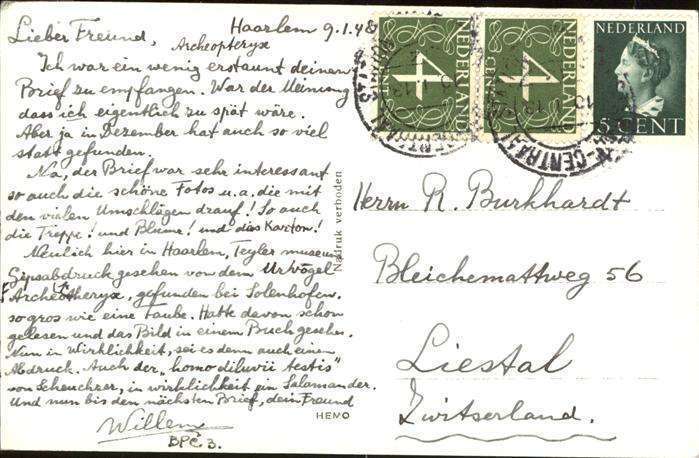 Haarlem 9.1.48
Lieber Freund,
Archeopteryx
Ich war ein wenig erstaunt deinen
Brief zu empfangen. War der Meinung
dass ich eigentlich zu spät wäre.
Aber ja in Dezember hat auch so viel
statt gefunden.
Na, der Brief war sehr interessant
so auch die schöne Fotos u.a. die mit
den vielen Umschlägen drauf! So auch
die Treppe! und Blume! und das Karton!
Neulich hier in Haarlem, Teyler museum
Gipsabdruck gesehen von dem Urvogel
Archeotheryx, gefunden bei Solenhofen.
so gros wie eine Taube. Hatte davon schon
gelesen und das Bild in einem Buch gesehen.
Nun in Wirklichkeit, sei es denn auch einen
Abdruck. Auch der "homo diluvii testis"
von Scheuchzer, in wirklichkeit ein Salamander.
Und nun bis den nächsten Brief, dein Freund
Willem
BPC 3.
Nadruk verboden
HEMO
NEDERLAND
4
CENT
NEDERLAND
4
CENT
NEDERLAND
5 CENT
Herrn R. Burkhardt
Bleichemattweg 56
Liestal
Zwitserland.